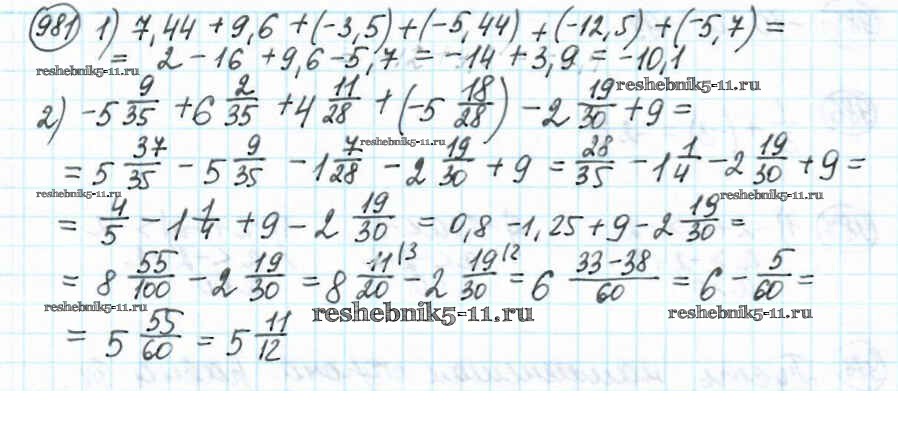 981 1) 7,44 + 9,6 + (-3,5) + (-5,44) + (-12,5) + (-5,7) =
= 2 - 16 + 9,6 - 5,7 = -14 + 3,9 = -10,1
reshebnik5-11.ru reshebnik5-11.ru
2) -5 9/35 + 6 2/35 + 4 11/28 + (-5 18/28) - 2 19/30 + 9 =
reshebnik5-11.ru
= 5 37/35 - 5 9/35 - 1 7/28 - 2 19/30 + 9 = 28/35 - 1 1/4 - 2 19/30 + 9 =
reshebnik5-11.ru reshebnik5-11.ru
= 4/5 - 1 1/4 + 9 - 2 19/30 = 0,8 - 1,25 + 9 - 2 19/30 =
= 8 55/100 - 2 19/30 = 8 11/20 |3 - 2 19/30 |2 = 6 33-38/60 = 6 - 5/60 =
reshebnik5-11.ru reshebnik5-11.ru reshebnik5-11.ru
= 5 55/60 = 5 11/12